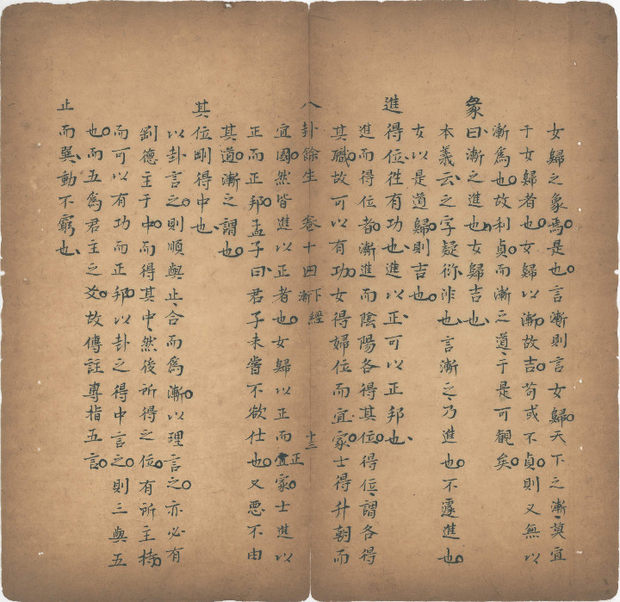 女歸之象焉是也言漸則言女歸天下之漸莫宜
于女歸者也女歸以漸故吉苟或不貞則又無以
漸為也故利貞而漸之道于是可觀矣
彖曰漸之進也女歸吉也
本義云之字疑衍非也言漸之乃進也不遽進也
女以是道歸則吉也
進得位徃有功也進以正可以正邦也
進而得位者漸進而陰陽各得其位得位謂各得
其職故可以有功女得婦位而宜家士得升朝而
八卦餘生 卷十四 下經 漸 十三
宜國然皆進以正者也女歸以正而宜家士進以
正
正而正邦孟子曰君子未嘗不欲仕也又惡不由
其道漸之謂也
其位剛得中也
以卦言之則順與止合而為漸以理言之亦必有
剛德主于中而得其中然後所得之位有所主持
而可以有功而正邦以卦之得中言之則三與五
也而五為君主之爻故傳註專指五言
止而巽動不窮也